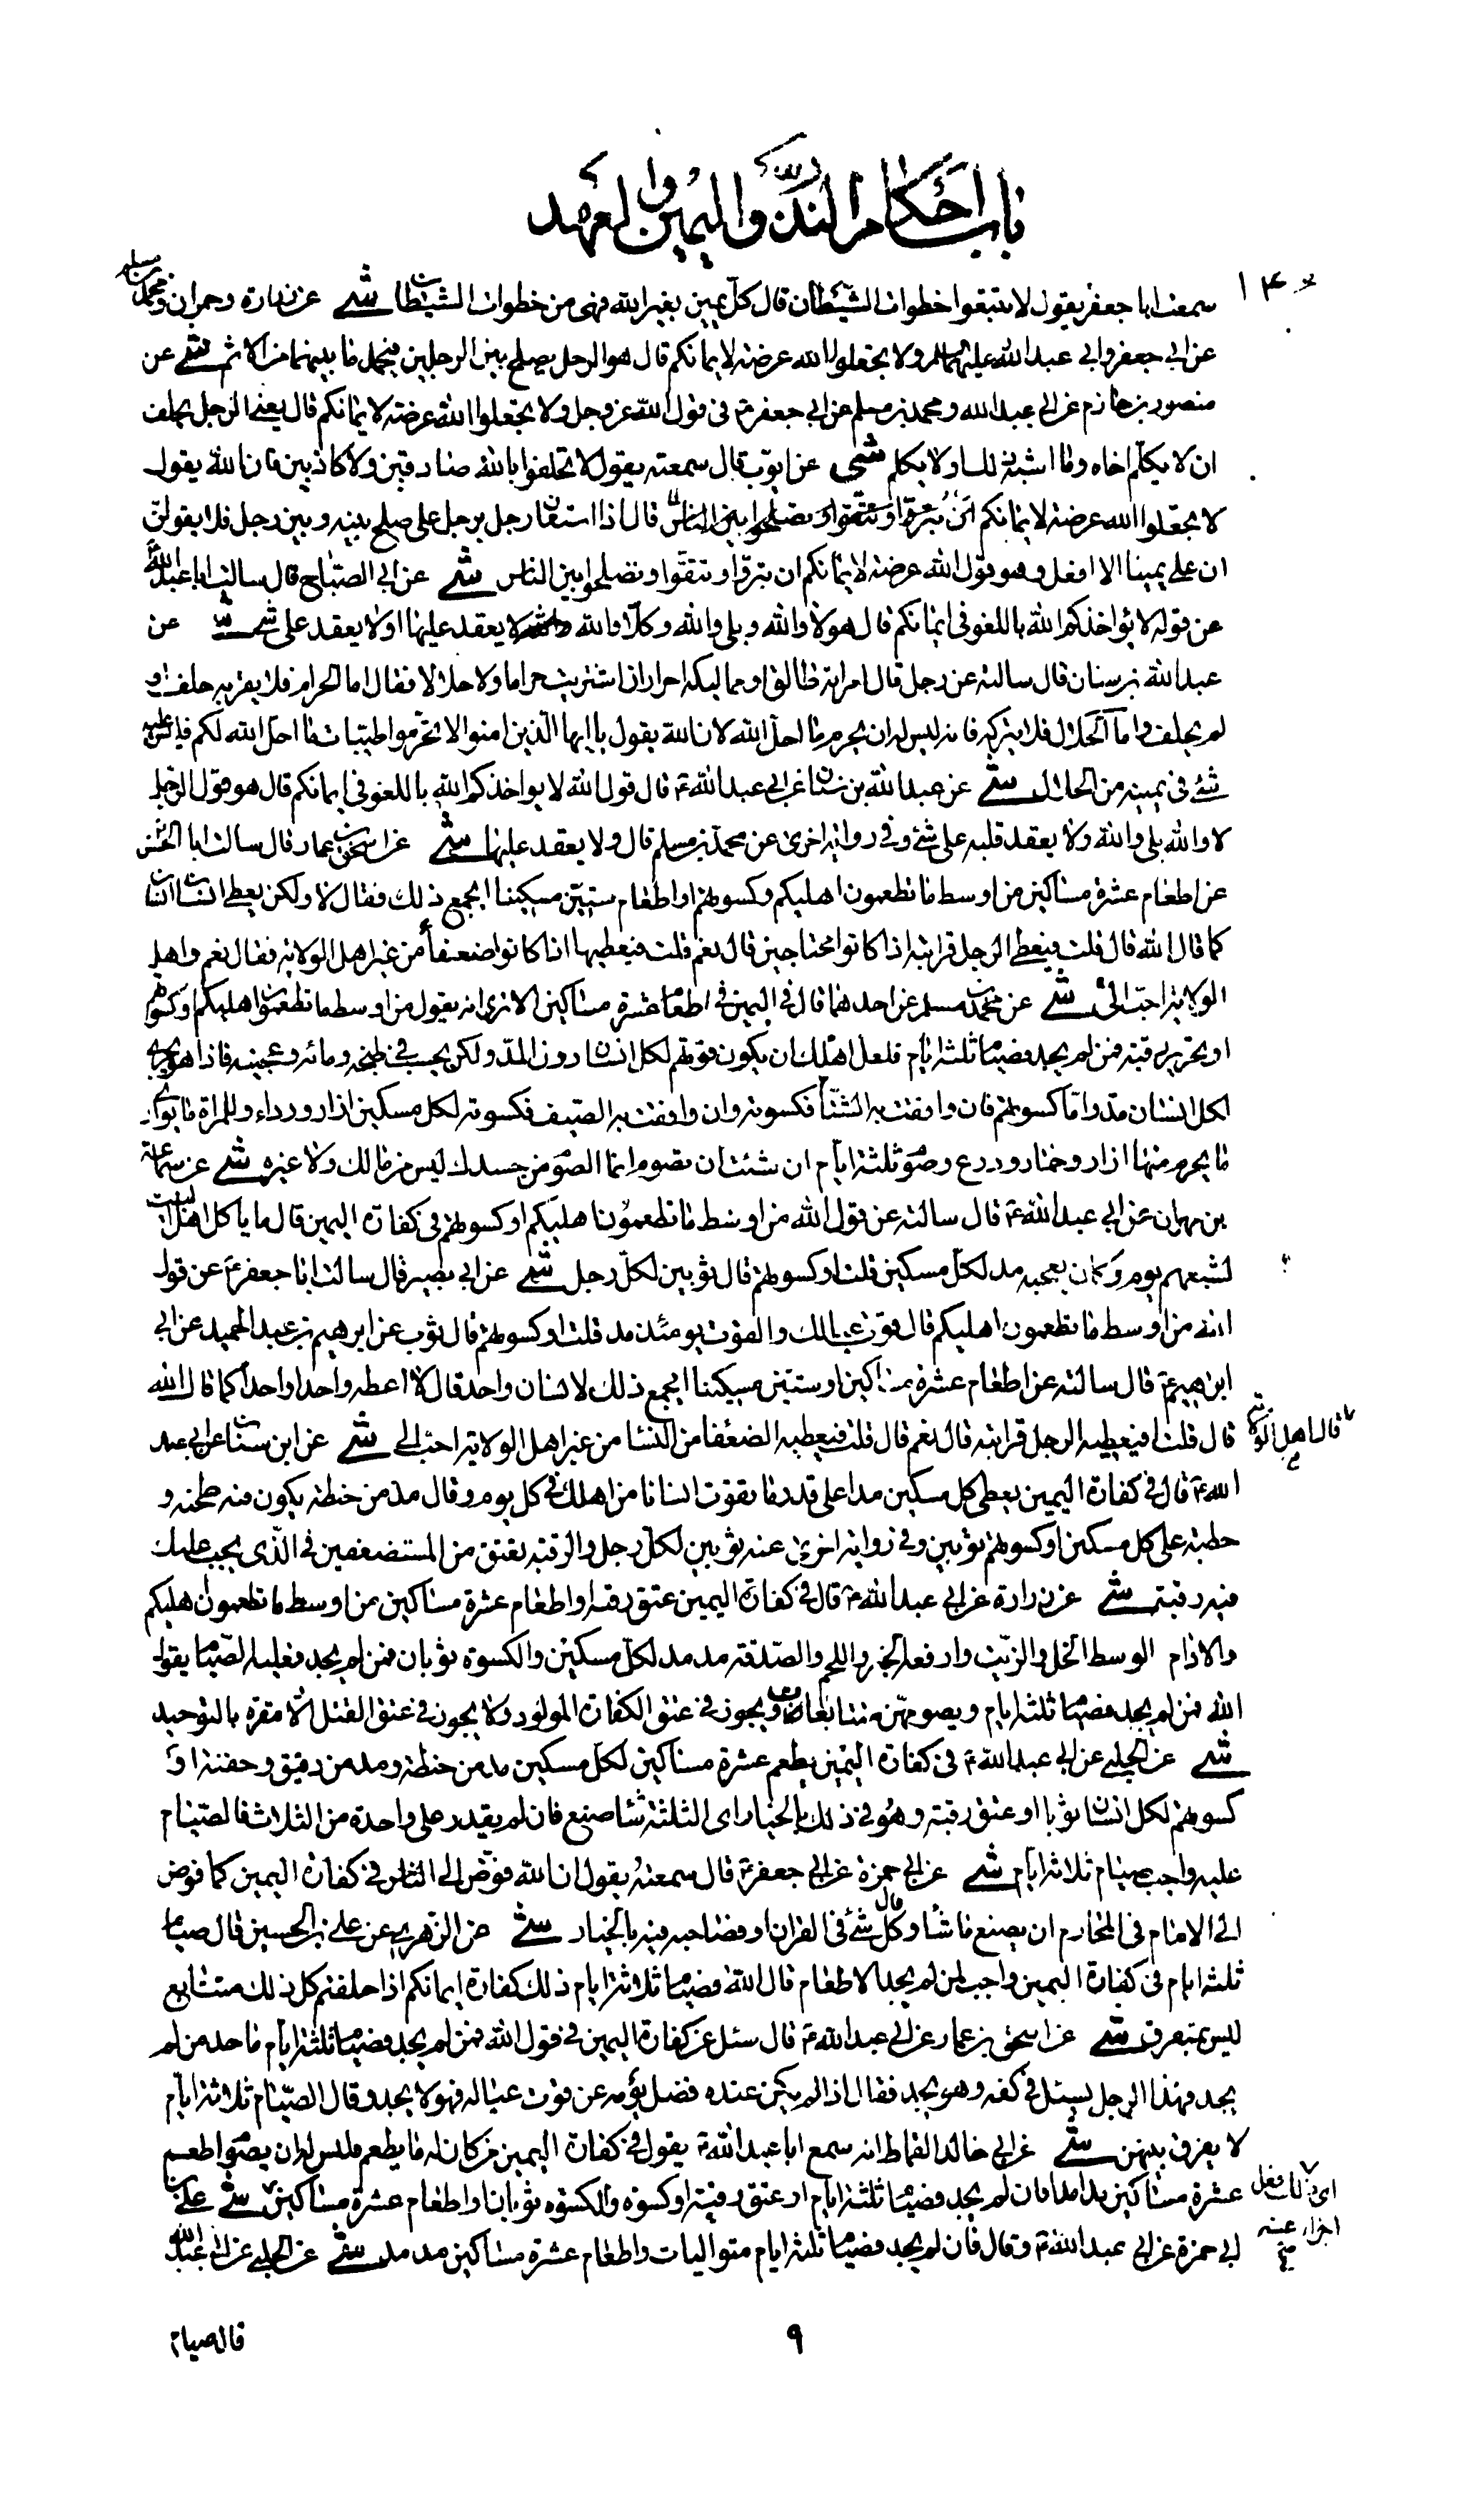 باب احكام النذر واليمين والعهد
سمعت ابا جعفر يقول لا تتبعوا خطوات الشيطان قال كل يمين بغير الله فهى من خطوات الشيطان شى عن زرارة وحمران ومحمد بن مسلم
عن ابى جعفر وابى عبد الله عليهما السلام ولا تجعلوا الله عرضة لايمانكم قال هو الرجل يصلح بين الرجلين فيحمل ما بينهما من الاثم شى عن
منصور بن حازم عن ابى عبد الله ومحمد بن مسلم عن ابى جعفر ع فى قول الله عز وجل ولا تجعلوا الله عرضة لايمانكم قال يعنى الرجل يحلف
ان لا يكلم اخاه وما اشبه ذلك او لا يكلم شى عن ايوب قال سمعته يقول لا تحلفوا بالله صادقين ولا كاذبين فان الله يقول
لا تجعلوا الله عرضة لايمانكم ان تبروا وتتقوا وتصلحوا بين الناس قال اذا استعان رجل برجل على صلح بينه وبين رجل فلا يقولن
ان على يمينا الا افعل وهو قول الله عرضة لايمانكم ان تبروا وتتقوا وتصلحوا بين الناس شى عن ابى الصباح قال سالت ابا عبد الله
عن قوله لا يؤاخذكم الله باللغو فى ايمانكم قال هو لا والله وبلى والله وكلا والله لا يعقد عليها او لا يعقد على شى شى عن
عبد الله بن سنان قال سالته عن رجل قال امراته طالق او مماليكه احرار ان شربت حراما ولا حلالا فقال اما الحرام فلا يقربه حلف او
لم يحلف واما الحلال فلا يتركه فانه ليس له ان يحرم ما احل الله لان الله يقول يا ايها الذين امنوا لا تحرموا طيبات ما احل الله لكم فليس عليه
شئ فى يمينه من الحلال شى عن عبد الله بن سنان عن ابى عبد الله ع قال قول الله لا يواخذكم الله باللغو فى ايمانكم قال هو قول الرجل
لا والله بلى والله ولا يعقد قلبه على شئ وفى رواية اخرى عن محمد بن مسلم قال ولا يعقد عليها شى عن اسحق بن عمار قال سالت ابا الحسن
عن اطعام عشرة مساكين من اوسط ما تطعمون اهليكم وكسوتهم او اطعام ستين مسكينا ايجمع ذلك فقال لا ولكن يعطى انسان انسان
كما قال الله قال قلت فيعطى الرجل قرابته اذا كانوا محتاجين قال نعم قلت فيعطيها اذا كانوا ضعفاء من غير اهل الولاية فقال نعم واهل
الولاية احب الى شى عن محمد بن مسلم عن احدهما قال فى اليمين فى اطعام عشرة مساكين الا ترى انه يقول من اوسط ما تطعمون اهليكم او كسوتهم
او تحرير رقبة فمن لم يجد فصيام ثلثة ايام فلعل اهلك ان يكون قوتهم لكل انسان دون المد ولكن يحسب فى طحنه ومائه وعجينه فاذا هو يجزى
لكل انسان مد واما كسوتهم فان وافقت به الشتاء فكسوته وان وافقت به الصيف فكسوته لكل مسكين ازار ورداء وللمراة ما يوارى
ما يحرم منها ازار وخمار ودرع وصوم ثلثة ايام ان شئت ان تصوم انما الصوم من جسدك ليس من مالك ولا غيره شى عن سماعة
بن مهران عن ابى عبد الله ع قال سالته عن قول الله من اوسط ما تطعمون اهليكم او كسوتهم فى كفارة اليمين قال ما ياكل اهل البيت
لشبعهم يوم وكان يعجبه مد لكل مسكين قلت او كسوتهم قال ثوبين لكل رجل شى عن ابى بصير قال سالت ابا جعفر ع عن قول
الله من اوسط ما تطعمون اهليكم قال قوت عيالك والقوت يومئذ مد قلت او كسوتهم قال ثوب عن ابرهيم بن عبد الحميد عن ابى
ابرهيم ع قال سالته عن اطعام عشرة مساكين او ستين مسكينا ايجمع ذلك لانسان واحد قال لا اعطه واحدا واحدا كما قال الله
قال قلت افيعطيه الرجل قرابته قال نعم قال قلت فيعطيه الضعفا من النسا من غير اهل الولاية احب الى شى عن ابن سنان عن ابى عبد
قال اهل الولاية
الله ع قال فى كفارة اليمين يعطى كل مسكين مدا على قدر ما يقوت انسانا من اهلك فى كل يوم وقال مد من حنطة يكون فيه طحنه و
حطبه على كل مسكين او كسوتهم ثوبين وفى رواية اخرى عنه ثوبين لكل رجل والرقبة يعتق من المستضعفين فى الذى يجب عليك
فيه رقبة شى عن زرارة عن ابى عبد الله ع قال فى كفارة اليمين عتق رقبة او اطعام عشرة مساكين من اوسط ما تطعمون اهليكم
والادام الوسط الخل والزيت وارفعه الخبز واللحم والصدقة مد مد لكل مسكين والكسوة ثوبان فمن لم يجد فعليه الصيام يقول
الله فمن لم يجد فصيام ثلثة ايام ويصومهن متتابعا ويجوز فى عتق الكفارة المولود ولا يجوز فى عتق القتل الا مقرة بالتوحيد
شى عن الحلبى عن ابى عبد الله ع فى كفارة اليمين يطعم عشرة مساكين لكل مسكين مد من حنطة ومد من دقيق وحفنة او
كسوتهم لكل انسان ثوبا او عتق رقبة وهو فى ذلك بالخيار اى الثلثة شا صنع فان لم يقدر على واحدة من الثلاث فالصيام
عليه واجب صيام ثلاثة ايام شى عن ابى حمزة عن ابى جعفر ع قال سمعته يقول ان الله فوض الى الناس فى كفارة اليمين كما فوض
الى الامام فى المحارم ان يصنع ما شاء وقال كل شئ فى القران او فصاحبه فيه بالخيار شى عن الزهرى عن على بن الحسين قال صيام
ثلثة ايام فى كفارة اليمين واجب لمن لم يجد الاطعام قال الله فصيام ثلاثة ايام ذلك كفارة ايمانكم اذا حلفتم كل ذلك متتابع
ليس بمتفرق شى عن اسحق بن عمار عن ابى عبد الله ع قال سئل عن كفارة اليمين فى قول الله فمن لم يجد فصيام ثلثة ايام ما حد من لم
يجد فهذا الرجل يسئل فى كفه وهو يجد فقال اذا لم يكن عنده فضل يومه عن قوت عياله فهو لا يجد وقال الصيام ثلاثة ايام
لا يفرق بينهن شى عن ابى خالد القماط انه سمع ابا عبد الله ع يقول فى كفارة اليمين من كان له ما يطعم فليس له ان يصوم اطعم
عشرة مساكين مدا مدا فان لم يجد فصيام ثلثة ايام او عتق رقبة او كسوة والكسوة ثوبان او اطعام عشرة مساكين شى على بن
اى ذلك فعل اجزا عنه
ابى حمزة عن ابى عبد الله ع وقال فان لم يجد فصيام ثلثة ايام متواليات واطعام عشرة مساكين مد مد شى عن الحلبى عن ابى عبد الله
٩
فالصيام